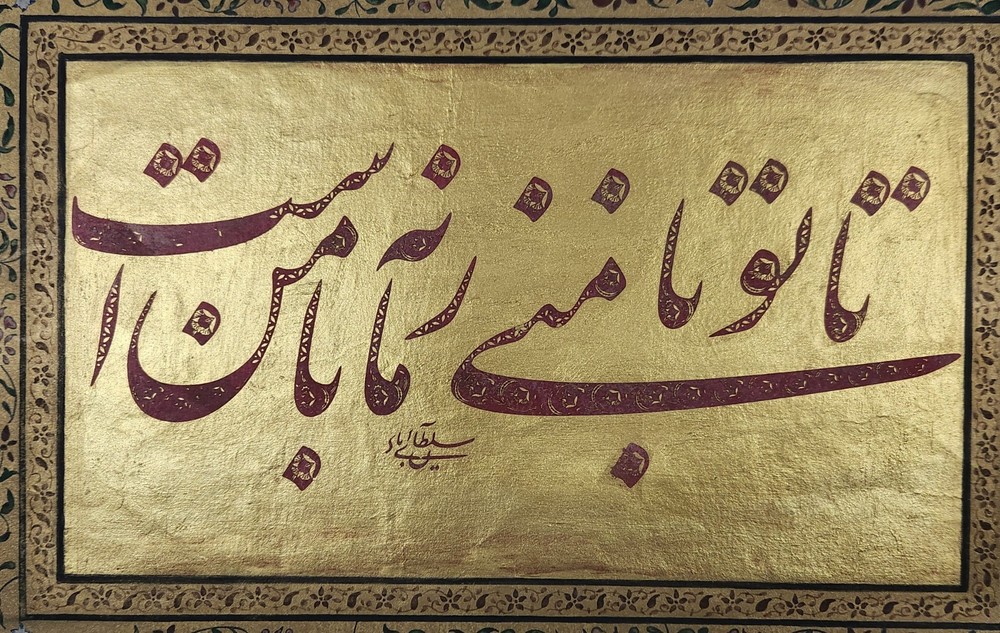 تا تو با منی زمانه با من است